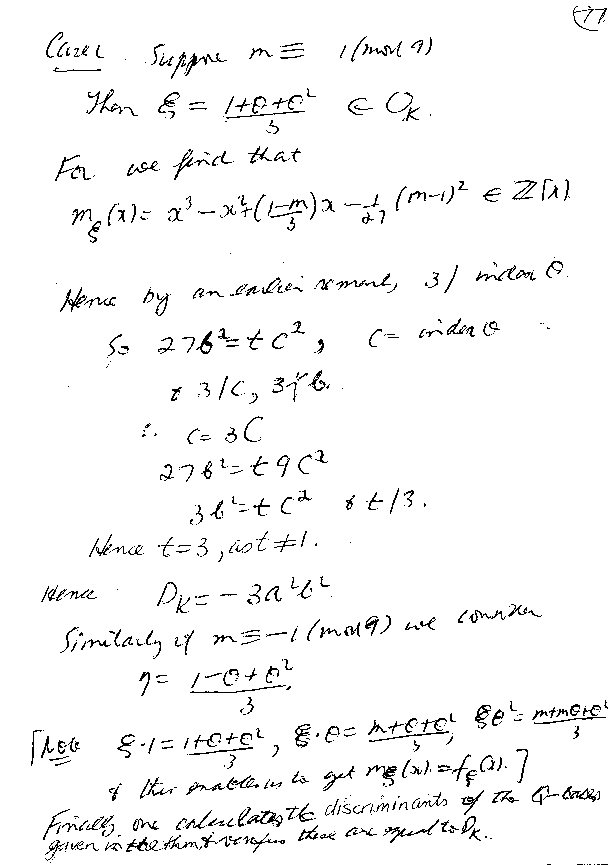 77
Case 1. Suppose m ≡ 1 (mod 9)
Then ξ = (1+θ+θ²)/3 ∈ O_K.
For we find that
m_ξ(x) = x³ − x² + ((1−m)/3)x − (1/27)(m−1)² ∈ ℤ[x].
Hence by an earlier remark, 3 | index θ.
So 27b² = tc², c = index θ
& 3|c, 3∤b.
∴ c = 3C
27b² = t9C²
3b² = tC² & t|3.
Hence t=3, as t≠1.
Hence D_K = −3a²b².
Similarly if m ≡ −1 (mod 9) we consider
η = (1−θ+θ²)/3.
[Note ξ·1 = (1+θ+θ²)/3, ξ·θ = (m+θ+θ²)/3, ξθ² = (m+mθ+θ²)/3
& this enables us to get m_ξ(x) = f_ξ(x).]
Finally, one calculates the discriminants of the Q-bases
given in the thm & verifies these are equal to D_K.